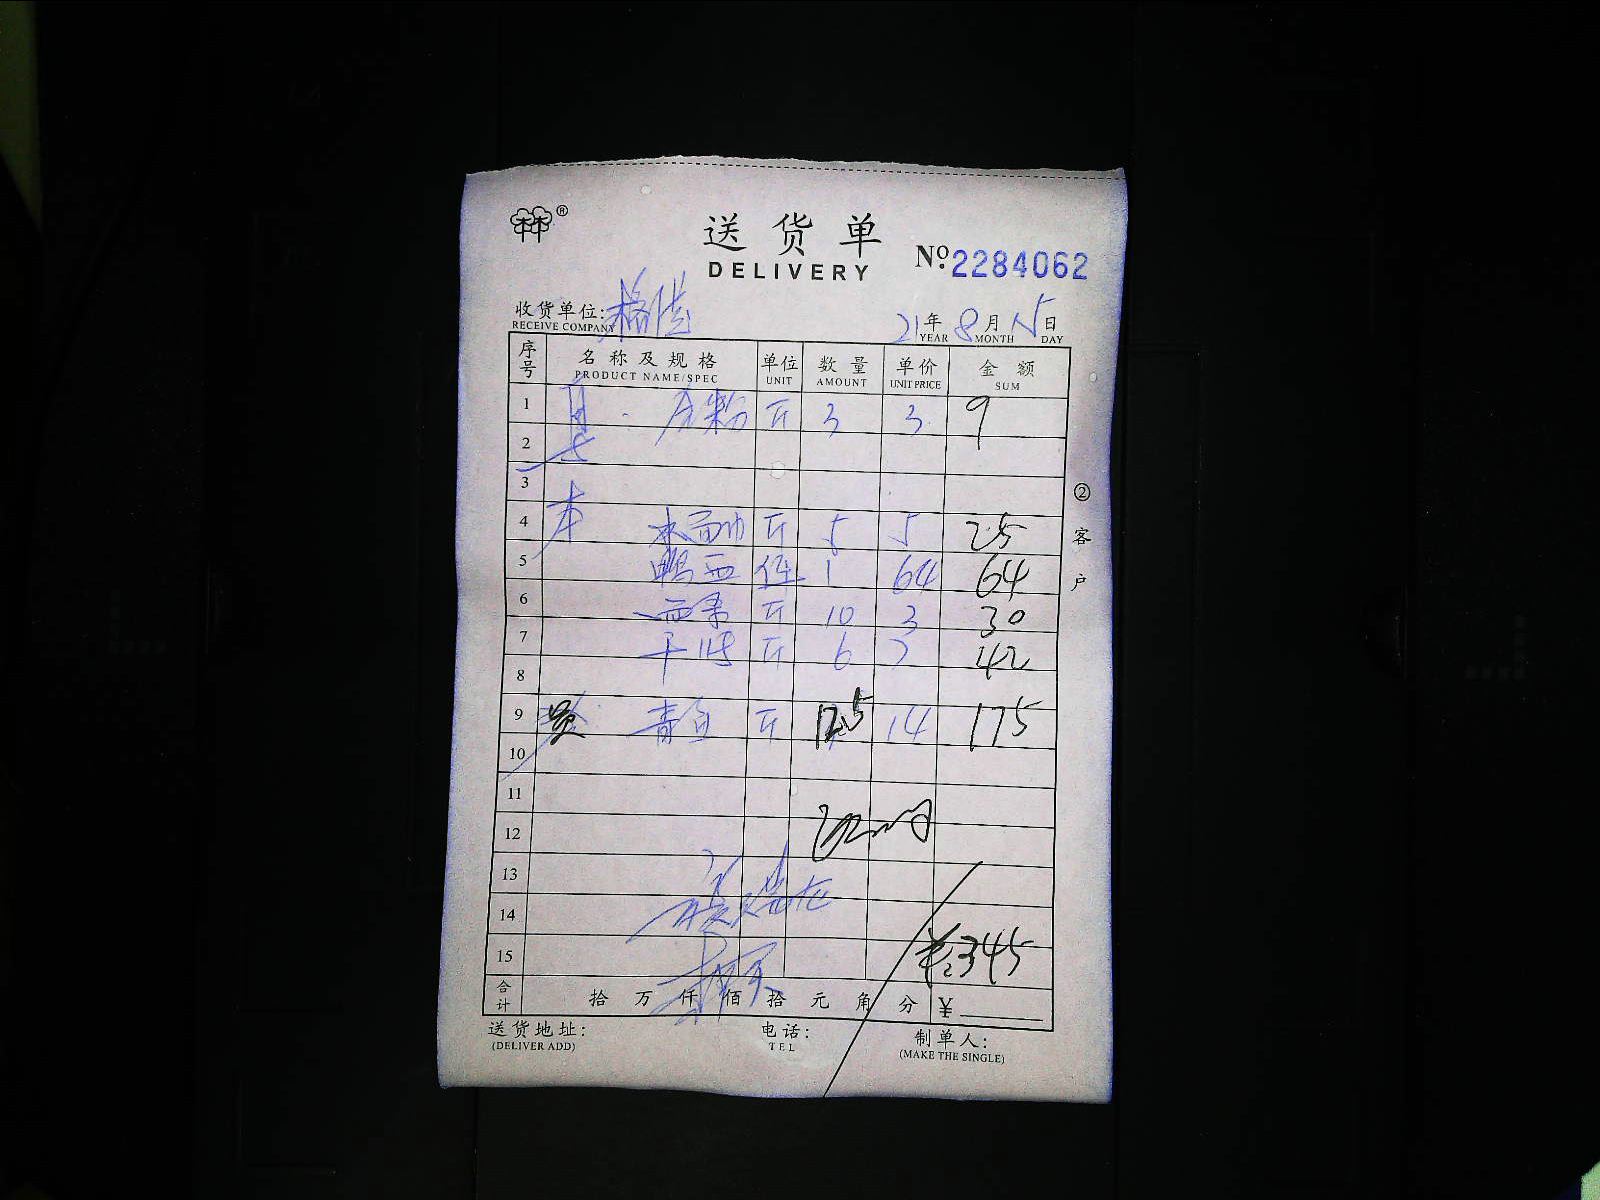 ®
送货单
DELIVERY
No.2284062
收货单位:
RECEIVE COMPANY
21年8月15日
YEAR MONTH DAY
序号 名称及规格 单位 数量 单价 金额
PRODUCT NAME/SPEC UNIT AMOUNT UNIT PRICE SUM
1 斤 3 3 9
2
3
4 斤 5 5 25
5 1 64 64
6 斤 10 3 30
7 斤 6 7 42
8
9 青鱼 斤 12.5 14 175
10
11
12
13
14
15 ¥:345
合计 拾 万 仟 佰 拾 元 角 分 ¥
送货地址: 电话: 制单人:
(DELIVER ADD) TEL (MAKE THE SINGLE)
②客户